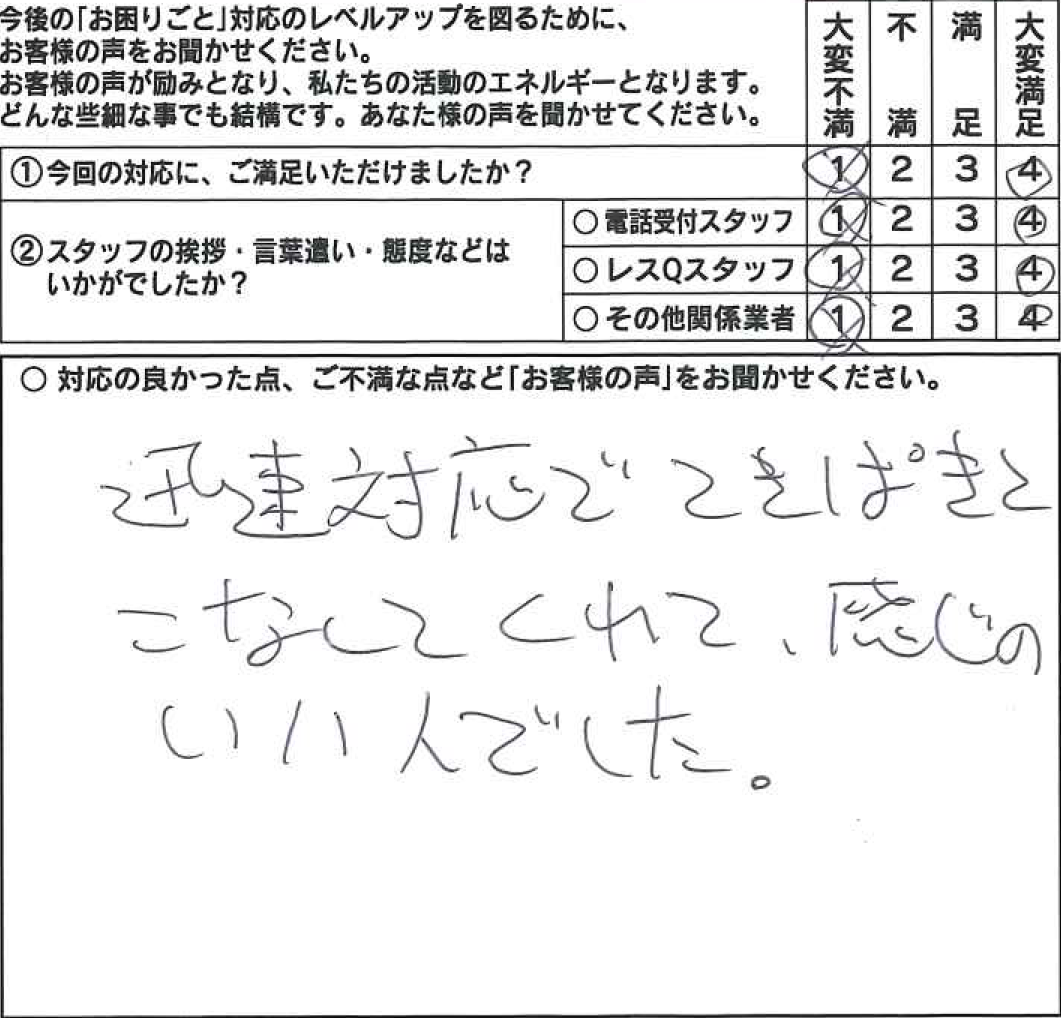 今後の「お困りごと」対応のレベルアップを図るために、
お客様の声をお聞かせください。
お客様の声が励みとなり、私たちの活動のエネルギーとなります。
どんな些細な事でも結構です。あなた様の声を聞かせてください。
大変不満 不満 満足 大変満足
①今回の対応に、ご満足いただけましたか？ 1 2 3 4
②スタッフの挨拶・言葉遣い・態度などは
いかがでしたか？
○電話受付スタッフ 1 2 3 4
○レスQスタッフ 1 2 3 4
○その他関係業者 1 2 3 4
○ 対応の良かった点、ご不満な点など「お客様の声」をお聞かせください。
迅速対応で てきぱきと
こなしてくれて、感じの
いい人でした。